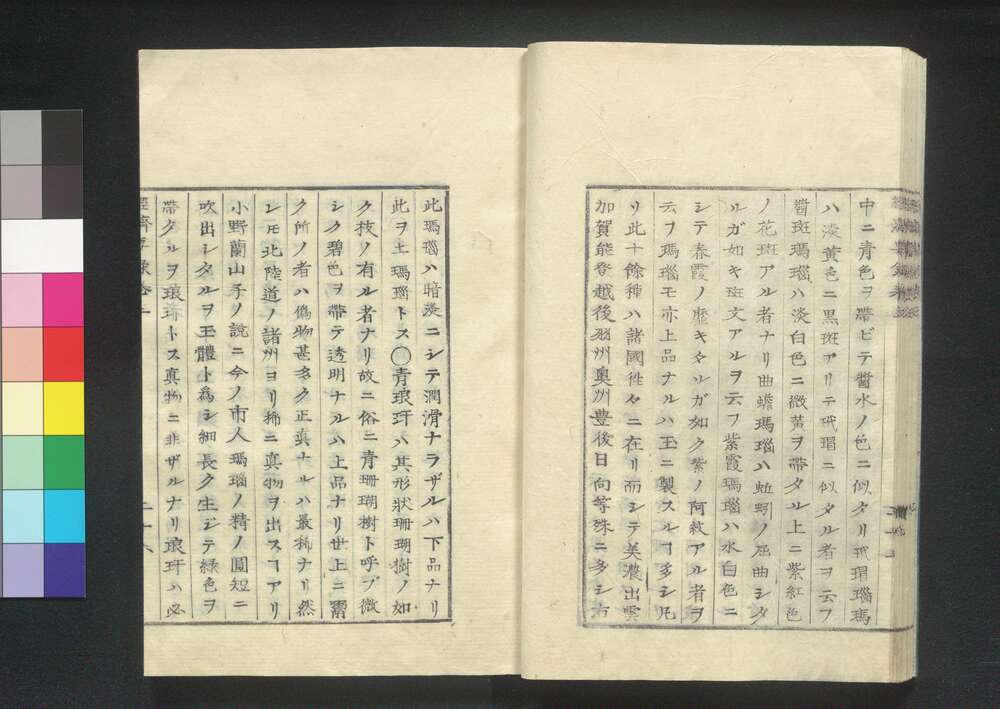 中ニ青色ヲ帶ビテ醬水ノ色ニ似タリ玳瑁瑙瑪
ハ淡黄色ニ黒斑アリテ玳瑁ニ似タル者ヲ云フ
醬斑瑪瑙ハ淡白色ニ微黄ヲ帶タル上ニ紫紅色
ノ花斑アル者ナリ曲蟮瑪瑙ハ蚯蚓ノ屈曲シタ
ルガ如キ斑文アルヲ云フ紫霞瑪瑙ハ水白色ニ
シテ春霞ノ靡キタルガ如ク紫ノ斑紋アル者ヲ
云フ瑪瑙モ亦上品ナルハ玉ニ製スルヿ多シ凡
リ此十餘種ハ諸國徃々ニ在リ而シテ美濃出雲
加賀能登越後羽州奥州豊後日向等殊ニ多シ右
此瑪瑙ハ暗淡ニシテ潤滑ナラザルハ下品ナリ
此ヲ土瑪瑙トス〇青琅玕ハ其形狀珊瑚樹ノ如
ク枝ノ有ル者ナリ故ニ俗ニ青珊瑚樹ト呼ブ微
シク碧色ヲ帶テ透明ナルハ上品ナリ世上ニ鬻
ク所ノ者ハ僞物甚多ク正真ナルハ最稀ナリ然
レ𪜈北陸道ノ諸州ヨリ稀ニ真物ヲ出スヿアリ
小野蘭山手ノ說ニ今ノ市人瑪瑙ノ精ノ圓短ニ
吹出シタルヲ玉體ト為シ細長ク生シテ緑色ヲ
帶タルヲ琅玕トス真物ニ非ザルナリ琅玕ハ必